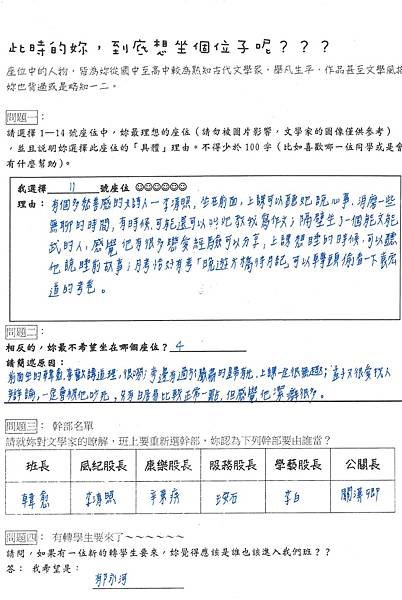 此時的妳，到底想坐個位子呢？？？
座位中的人物，皆為妳從國中至高中較為熟知古代文學家，舉凡生平、作品甚至文學風格
妳也背過或是略知一二。
問題一：
請選擇 1—14 號座位中，妳最理想的座位（請勿被圖片影響，文學家的圖像僅供參考）
，並且說明妳選擇此座位的「具體」理由。不得少於 100 字（比如喜歡哪一位同學或是會
有什麼幫助）。
我選擇 11 號座位 ☺☺☺☺☺☺
理由：有個多愁善感的女詩人—李清照，坐在前面，上課可以聽她說心事，消磨一些
無聊的時間，有時候，可能還可以叫她教我寫作文；隔壁坐了一個能文能
武的人，感覺他有很多戀愛經驗可以分享，上課想睡的時候，可以聽
他說睡前故事；月考恰好有考「晚遊六橋待月記」可以轉頭偷看一下袁宏
道的考卷。
問題二：
相反的，妳最不希望坐在哪個座位？ 4
請簡述原因：
前面坐的韓愈，喜歡講道理，很嘮；旁邊有
上課一定很無趣；孟子又很愛找人
辯論，一定會被他吵死，只有
比較正常一點，但感覺他
很多。
問題三： 幹部名單
請就妳對文學家的瞭解，班上要重新選幹部，妳認為下列幹部要由誰當？
班長 風紀股長 康樂股長 服務股長 學藝股長 公關長
韓愈 李清照 辛棄疾 王安石 李白 關漢卿
問題四： 有轉學生要來了～～～～～～
請問，如果有一位新的轉學生要來，妳覺得應該是誰也該進入我們班？？
答： 我希望是： 郁永河